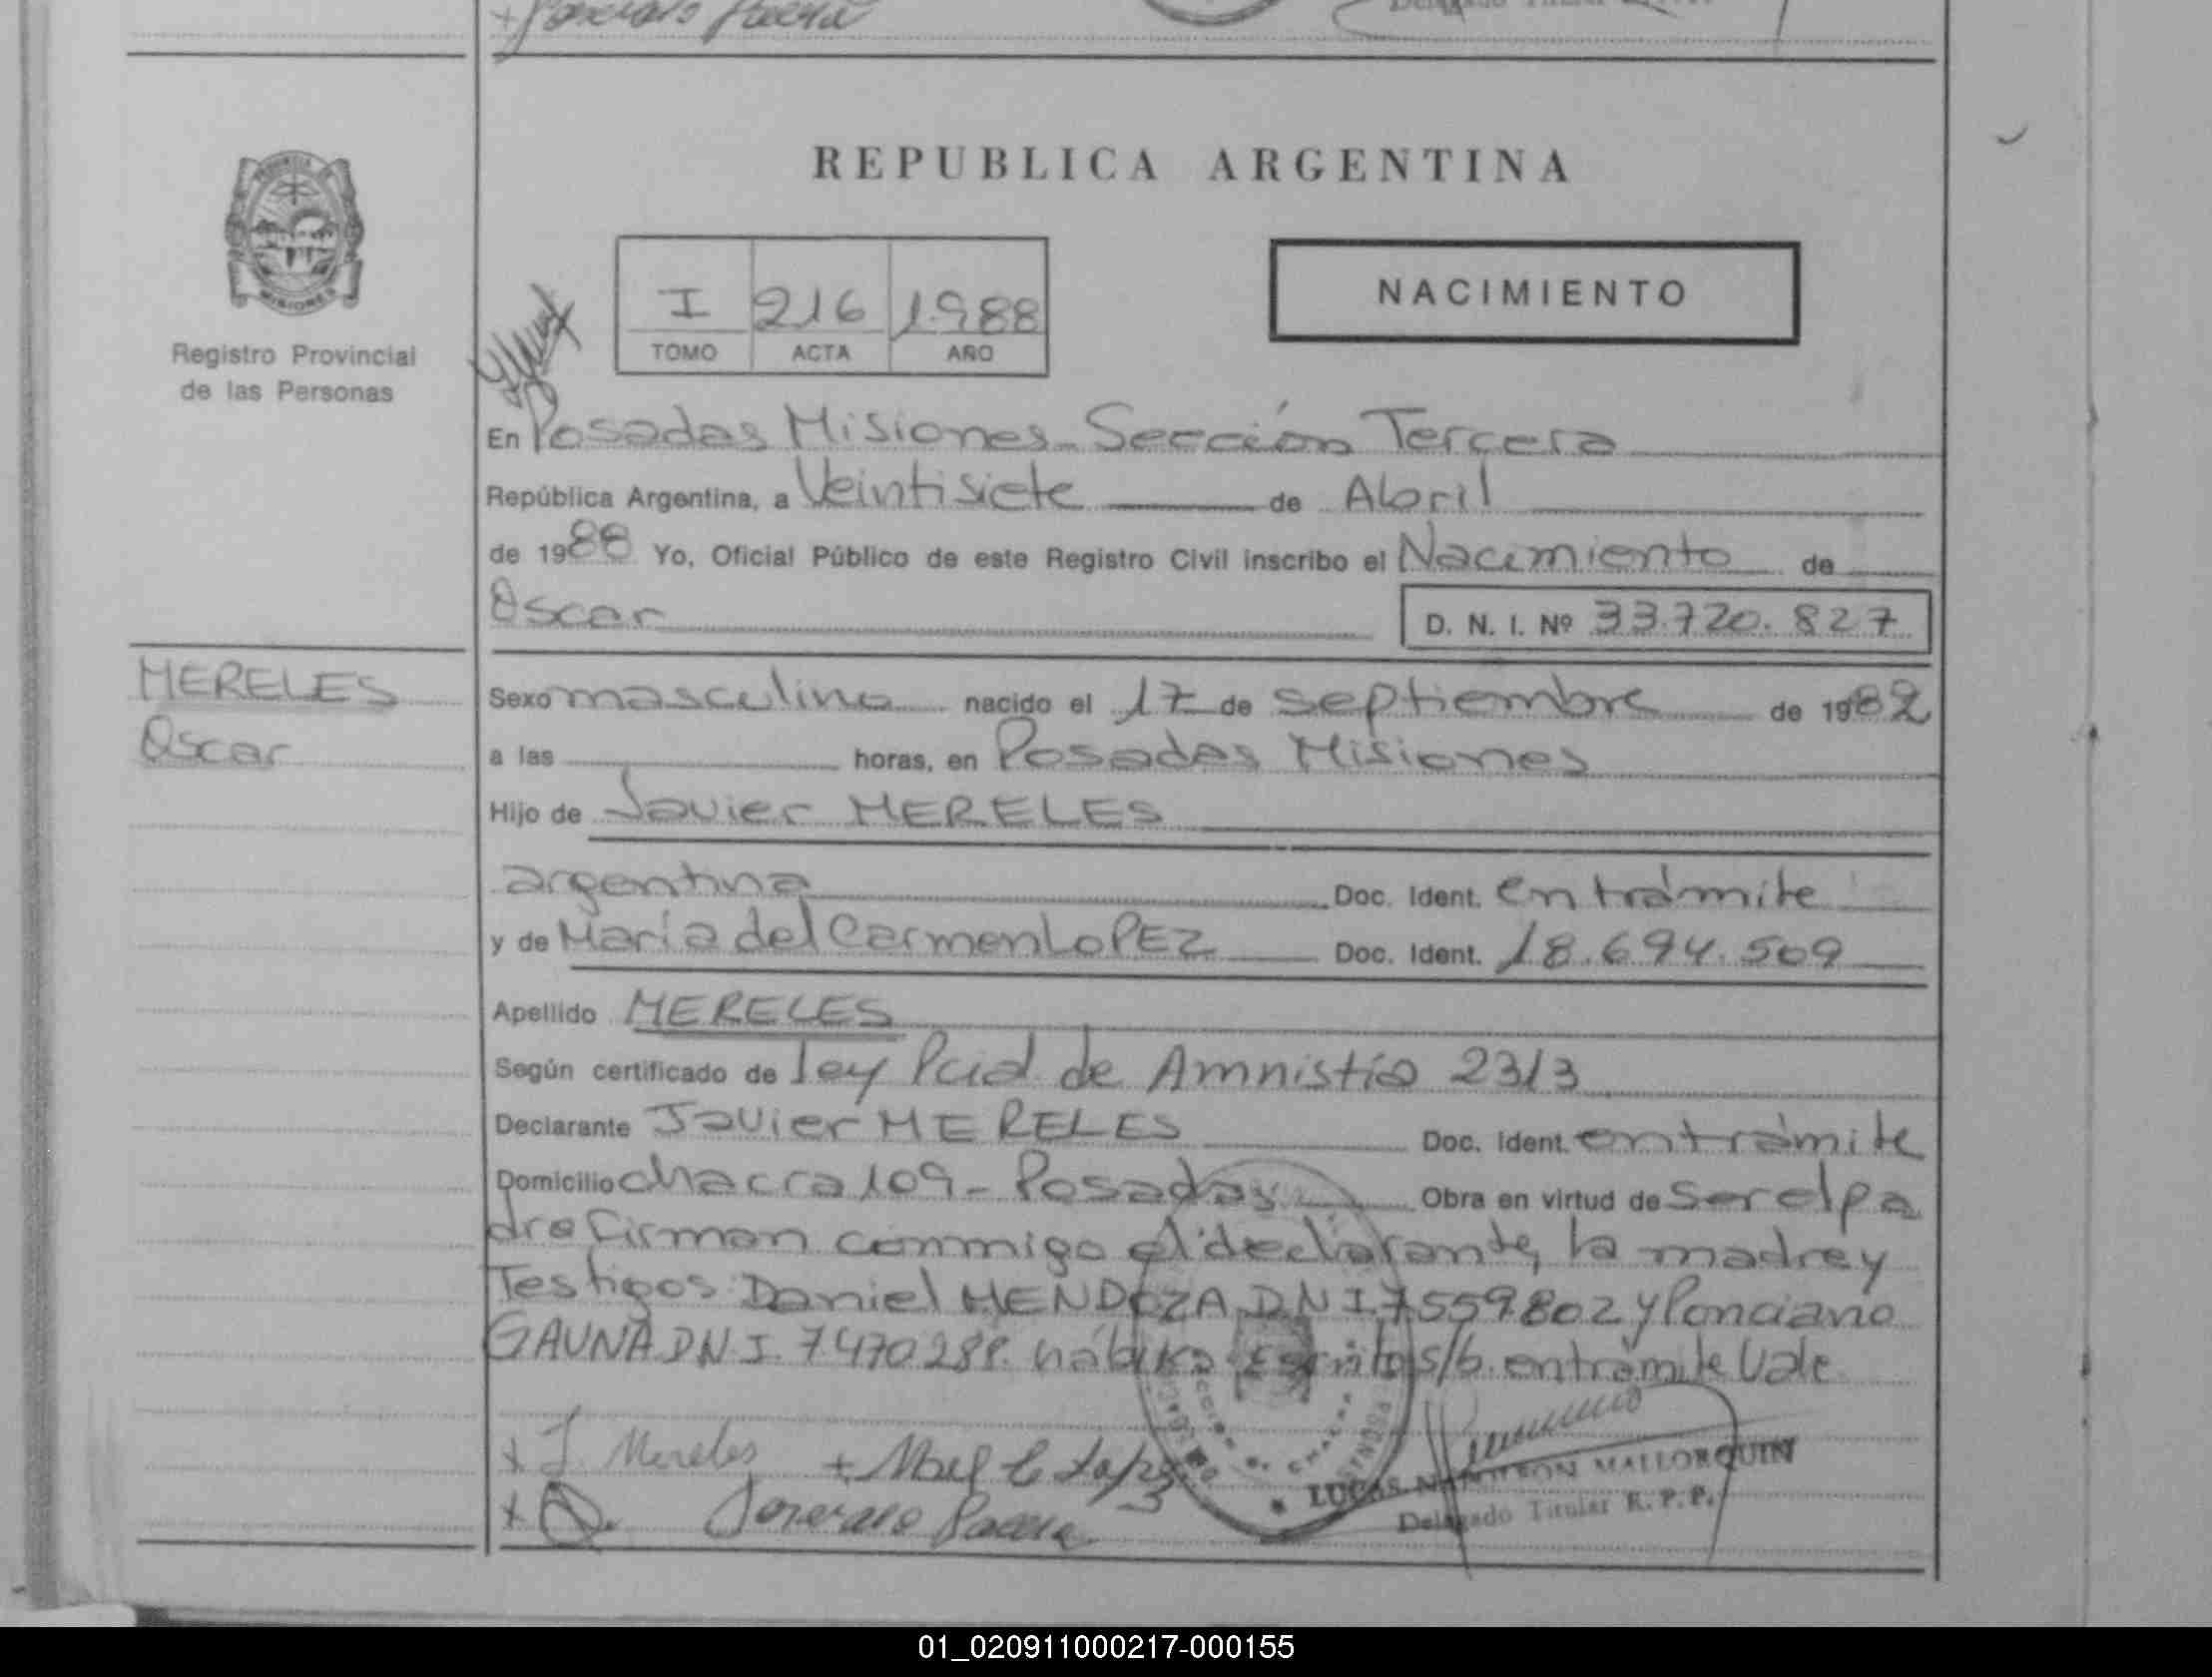 REPUBLICA ARGENTINA
PROVINCIA
MISIONES
Registro Provincial
de las Personas
I 216 1988
TOMO ACTA AÑO
NACIMIENTO
En Posadas Misiones - Sección Tercera
República Argentina, a Veintisiete de Abril
de 1988 Yo, Oficial Público de este Registro Civil inscribo el Nacimiento de
Oscar D. N. I. Nº 33.720.827
MERELES
Oscar
Sexo masculino nacido el 17 de septiembre de 1982
a las horas, en Posadas Misiones
Hijo de Javier MERELES
argentina Doc. Ident. en trámite
y de María del Carmen LOPEZ Doc. Ident. 18.694.509
Apellido MERELES
Según certificado de ley Pcial de Amnistía 23/3
Declarante Javier MERELES Doc. Ident. en trámite
Domicilio chacra 109 - Posadas Obra en virtud de ser el pa
dre firman conmigo el declarante, la madre y
Testigos Daniel MENDOZA DNI 7559802 y Ponciano
GAUNA D.N.I. 7470288. hábiles s/b. en trámite Vale
+ J. Mereles +
LUCAS NAPOLEON MALLORQUIN
Delegado Titular R. P. P.
01_020911000217-000155